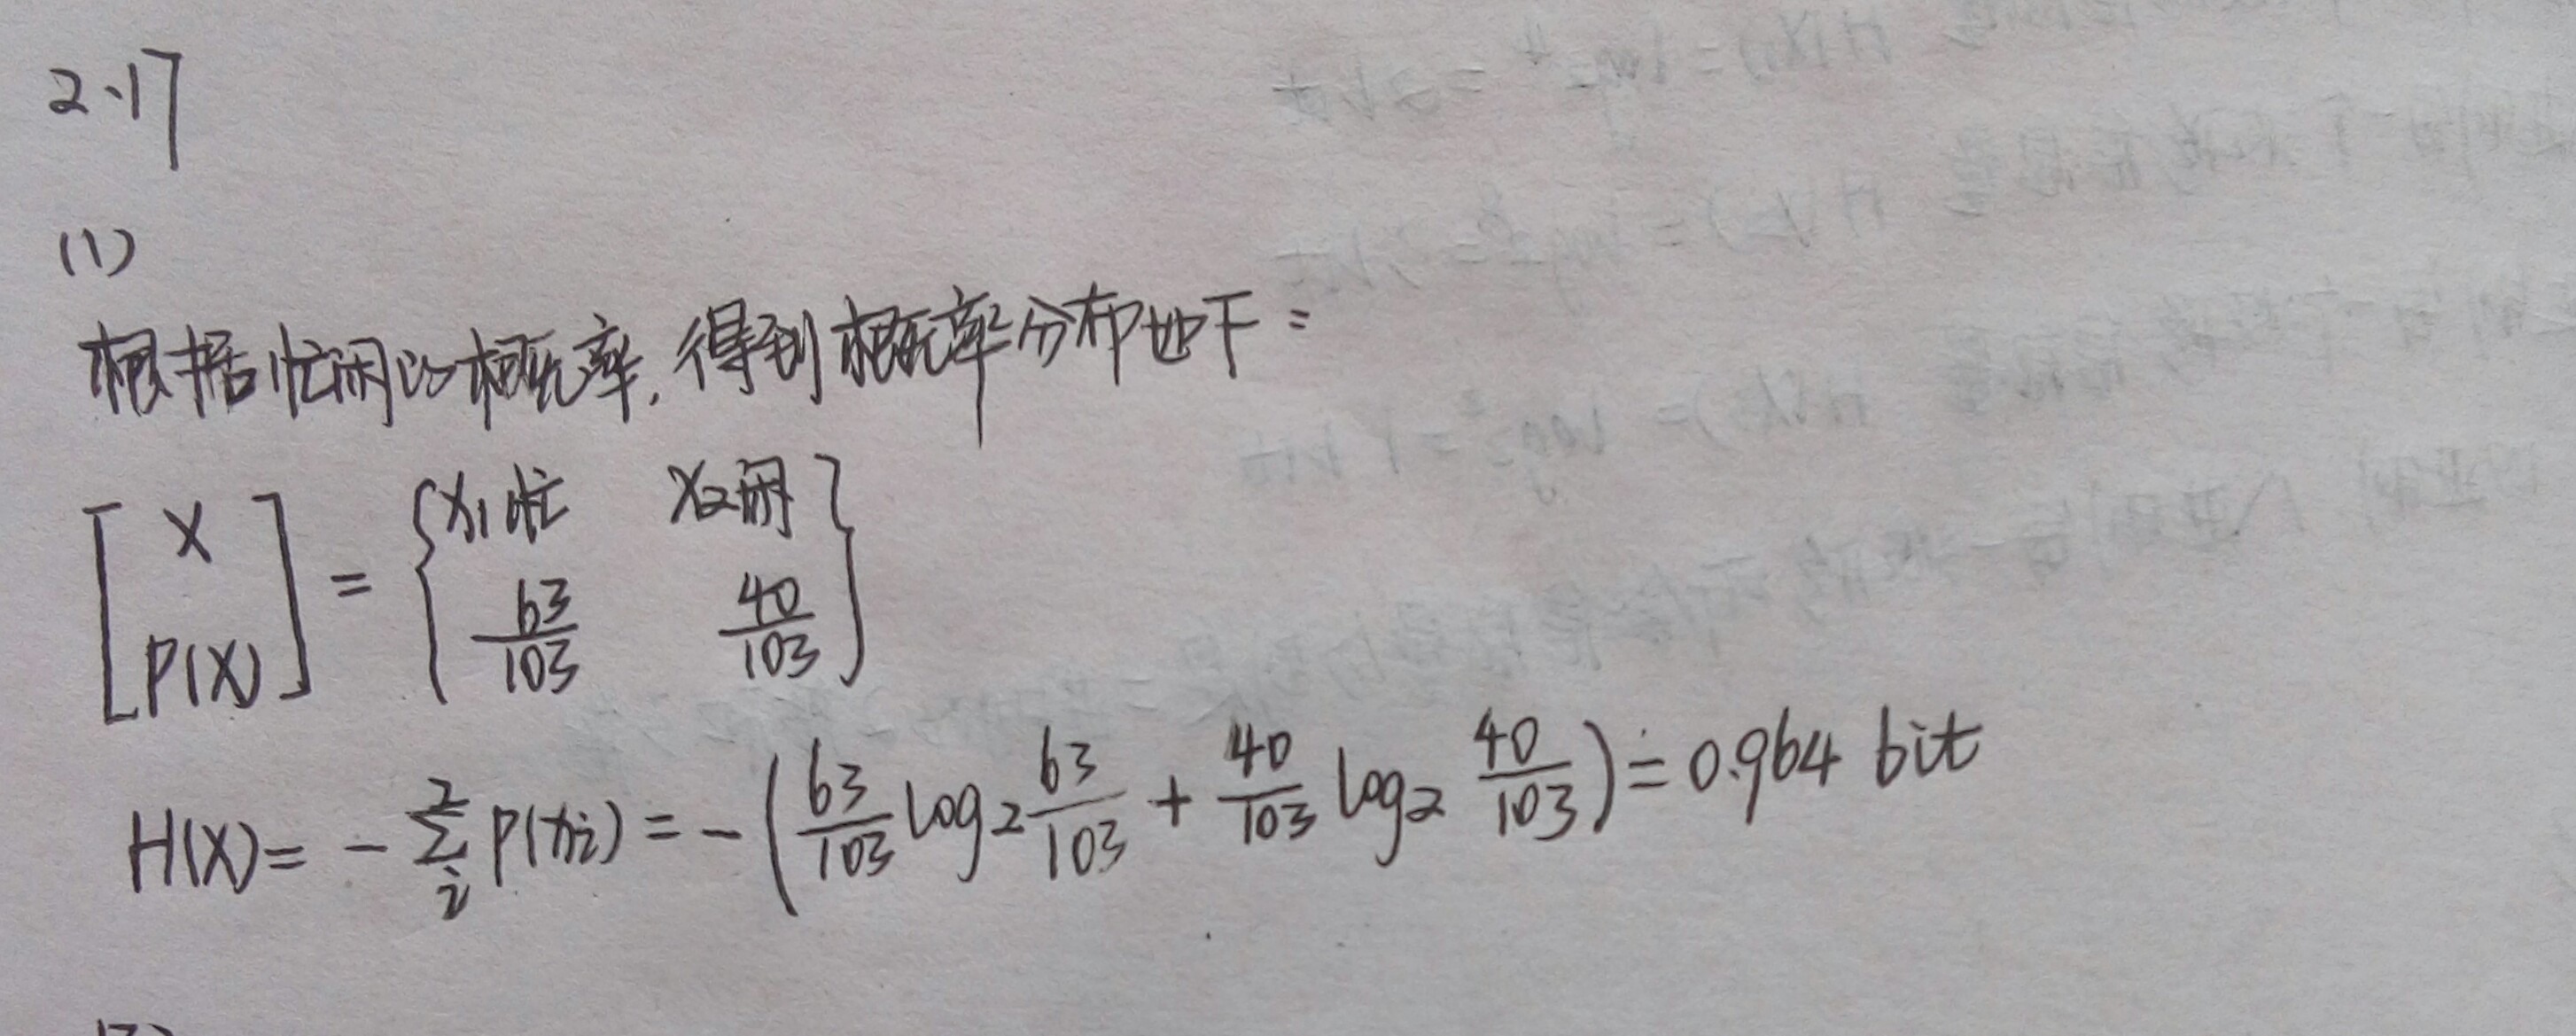 2.17
(1)
根据忙闲的概率,得到概率分布如下:
[X P(X)] = {x1忙 x2闲 63/103 40/103}
H(X) = -∑_i^2 P(xi) = -(63/103 log2 63/103 + 40/103 log2 40/103) ≐ 0.964 bit